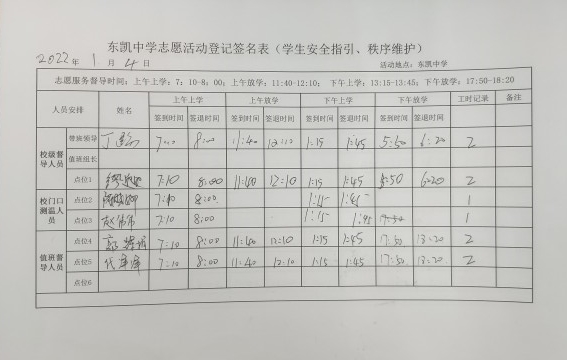 东凯中学志愿活动登记签名表（学生安全指引、秩序维护）
2022年 1月 4日 活动地点：东凯中学
志愿服务督导时间：上午上学：7：10-8：00；上午放学：11:40-12:10； 下午上学：13:15-13:45；下午放学：17:50-18:20
人员安排 姓名 上午上学 上午放学 下午上学 下午放学 工时记录 备注
签到时间 签退时间 签到时间 签退时间 签到时间 签退时间 签到时间 签退时间
校级督导人员 带班领导 7:00 8:00 11:40 12:10 1:15 1:45 5:50 6:20 2
值班组长
点位1 7:10 8:00 11:40 12:10 1:15 1:45 5:50 6:20 2
校门口测温人员 点位2 7:10 8:00 1:15 1:45 1
点位3 赵伟伟 7:10 8:00 1:15 1:45 17:50 1
值班督导人员 点位4 7:10 8:00 11:40 12:10 1:15 1:45 17:50 18:20 2
点位5 7:10 8:00 11:40 12:10 1:15 1:45 17:50 18:20 2
点位6